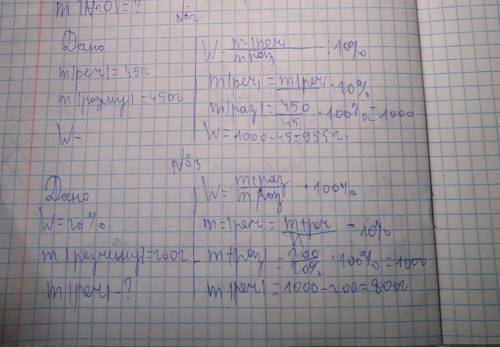 m (H2O) = ?
№2
Дано
m(реч) = 45г
m(розчину) = 450г
W-
W = m(реч) / m роз · 10%
m(реч) = m(реч) · 10%
m(роз) = 450 / 45 · 100% = 1000
W = 1000 - 45 = 955г.
№3
Дано
W = 20%
m(розчину) = 200г
m(реч) - ?
W = m(роз / m роз · 100%
m = (реч = m+реч / · 10%
m+роз) = 200 / 20% · 100% = 1000
m(реч) = 1000 - 200 = 80г